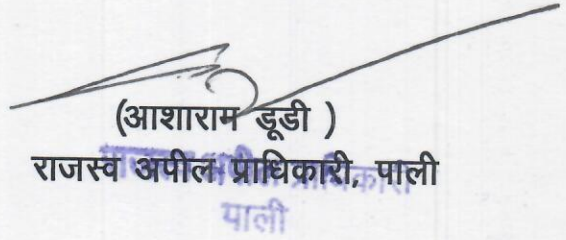 (आशाराम डूडी )
राजस्व अपील प्राधिकारी, पाली
पाली